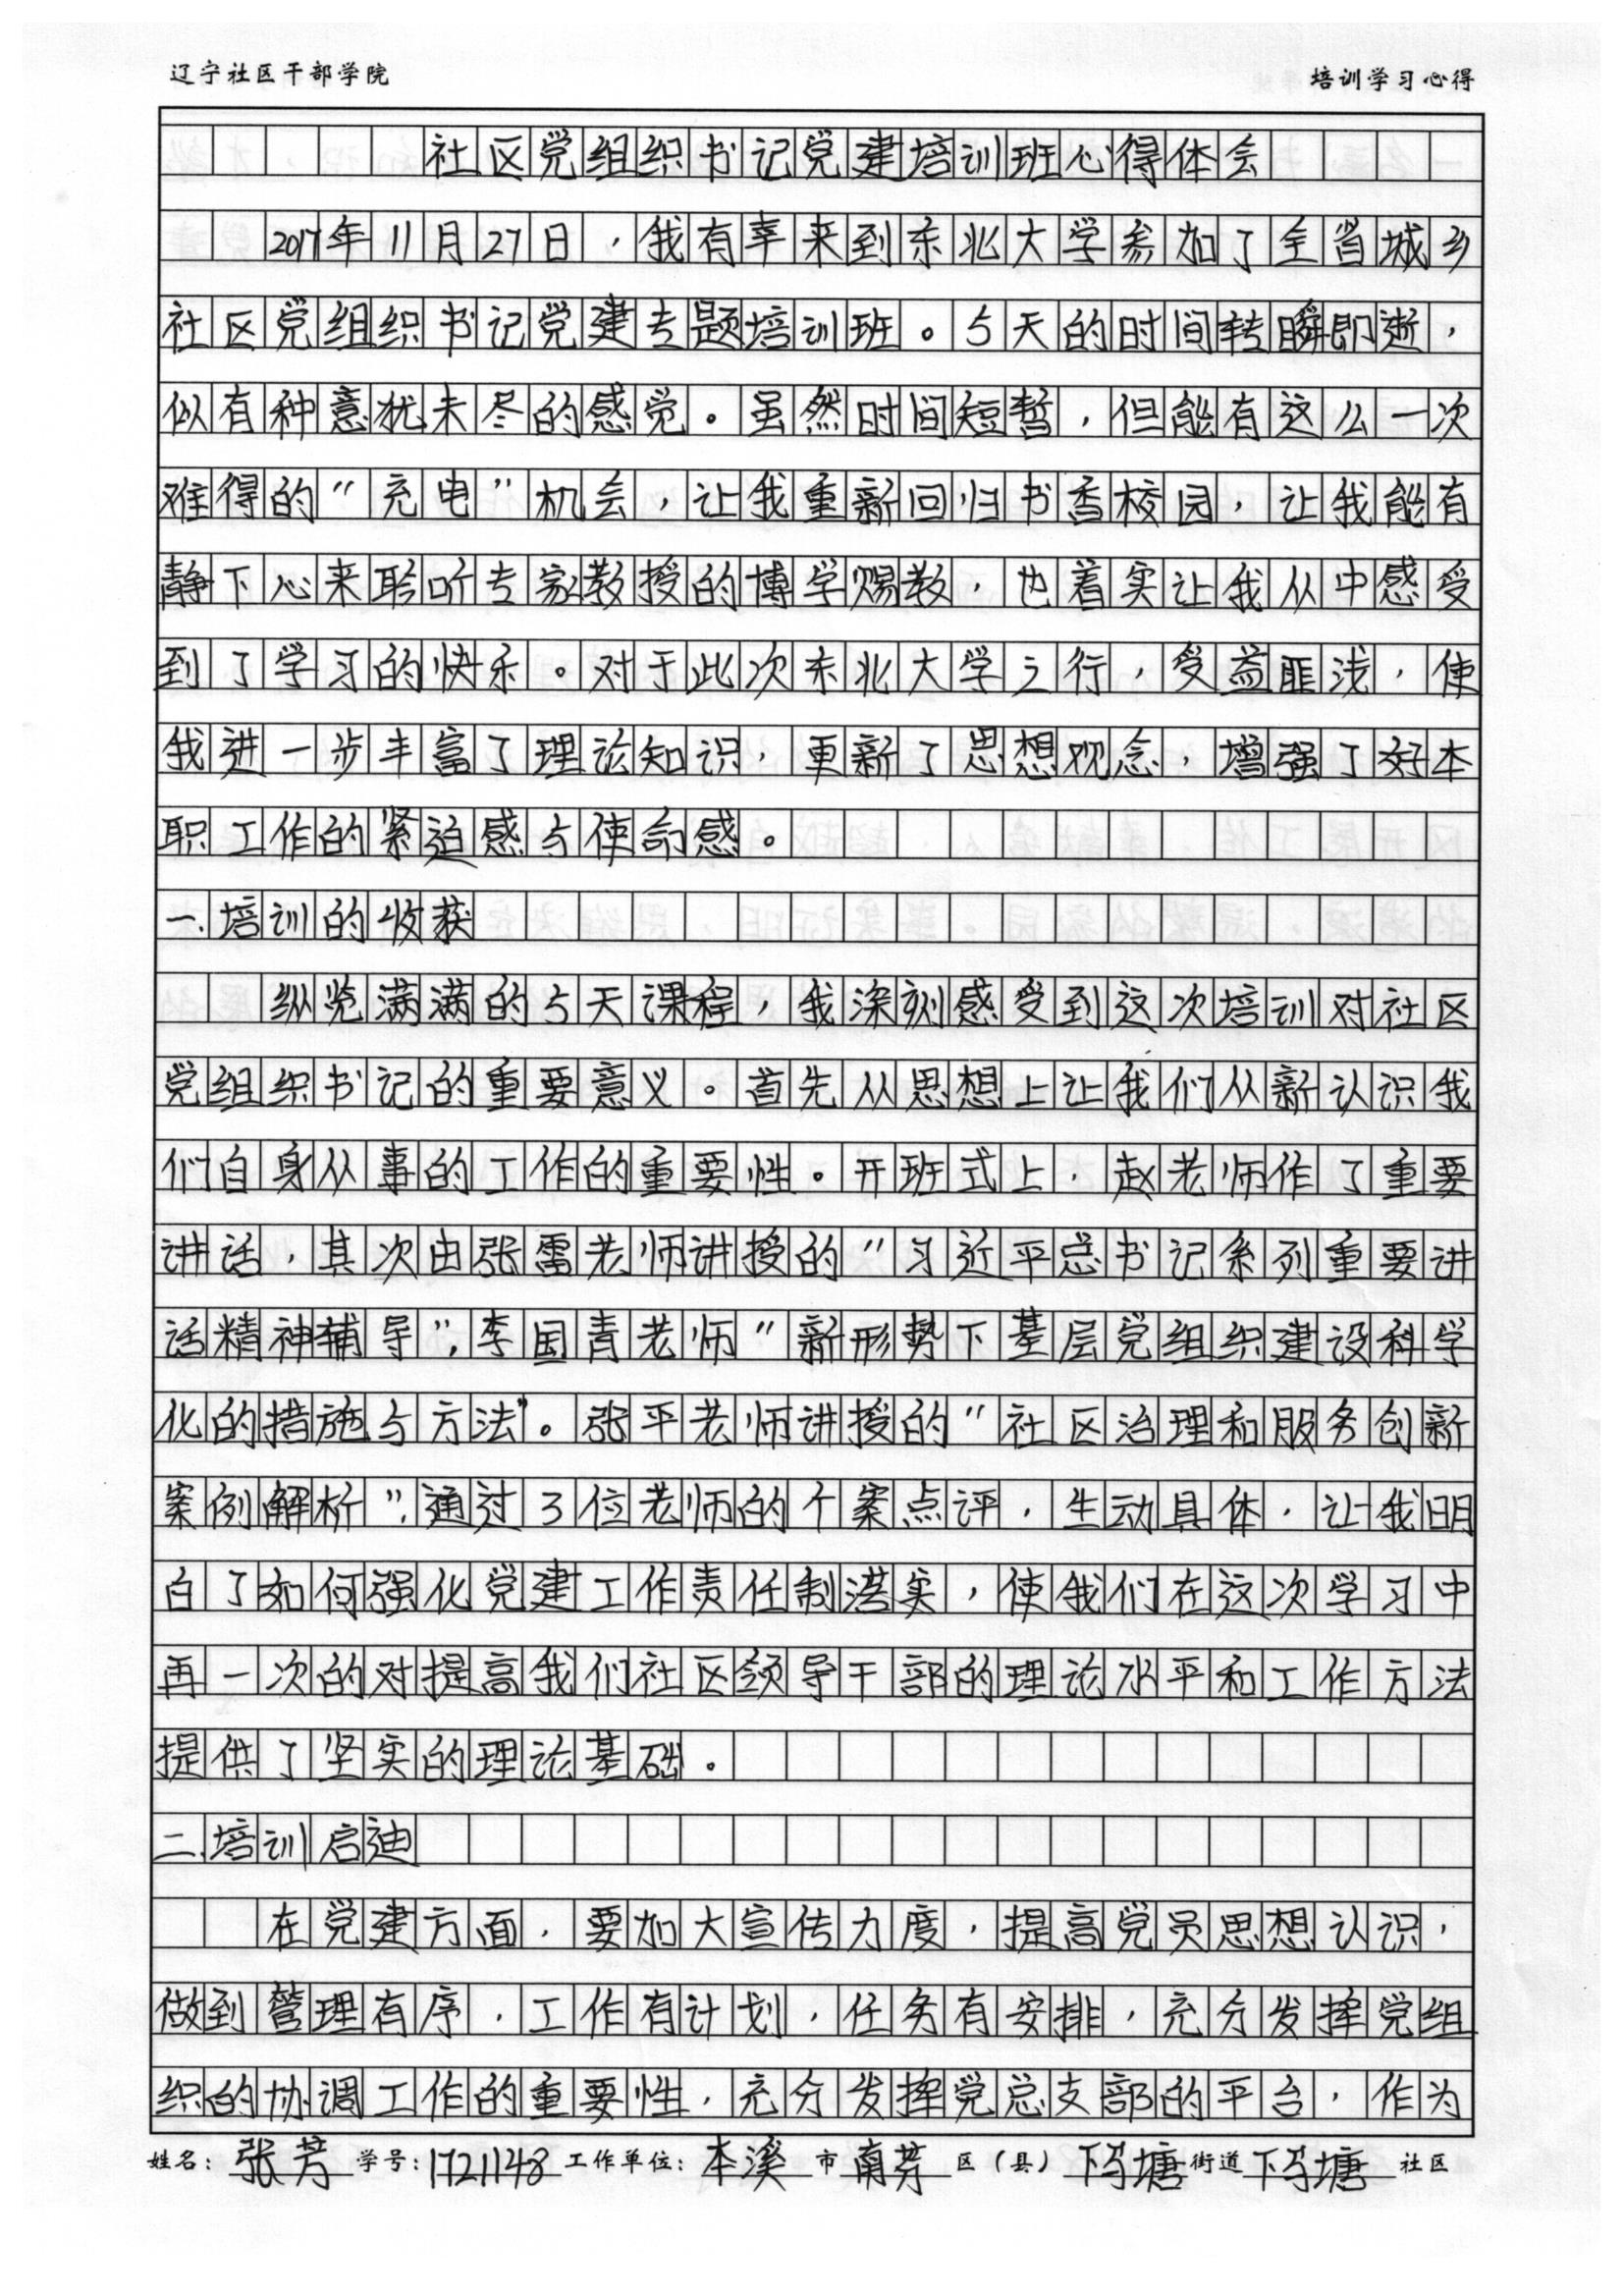 辽宁社区干部学院 培训学习心得
社区党组织书记党建培训班心得体会
2017年11月27日，我有幸来到东北大学参加了全省城乡
社区党组织书记党建专题培训班。5天的时间转瞬即逝，
似有种意犹未尽的感觉。虽然时间短暂，但能有这么一次
难得的“充电”机会，让我重新回归书香校园，让我能有
静下心来聆听专家教授的博学赐教，也着实让我从中感受
到了学习的快乐。对于此次东北大学之行，受益匪浅，使
我进一步丰富了理论知识，更新了思想观念，增强了好本
职工作的紧迫感与使命感。
一.培训的收获
纵览满满的5天课程，我深刻感受到这次培训对社区
党组织书记的重要意义。首先从思想上让我们从新认识我
们自身从事的工作的重要性。开班式上，赵老师作了重要
讲话，其次由张雷老师讲授的“习近平总书记系列重要讲
话精神辅导”，李国青老师“新形势下基层党组织建设科学
化的措施与方法”。张平老师讲授的“社区治理和服务创新
案例解析”，通过3位老师的个案点评，生动具体，让我明
白了如何强化党建工作责任制落实，使我们在这次学习中
再一次的对提高我们社区领导干部的理论水平和工作方法
提供了坚实的理论基础。
二.培训启迪
在党建方面，要加大宣传力度，提高党员思想认识，
做到管理有序，工作有计划，任务有安排，充分发挥党组
织的协调工作的重要性，充分发挥党总支部的平台，作为
姓名：张芳 学号：1721148 工作单位：本溪市南芬区（县）下马塘街道下马塘社区